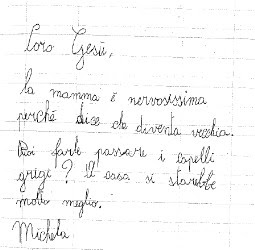 Caro Gesù,
la mamma è nervosissima
perché dice che diventa vecchia.
Puoi farle passare i capelli
grigi? A casa si starebbe
molto meglio.
Michela